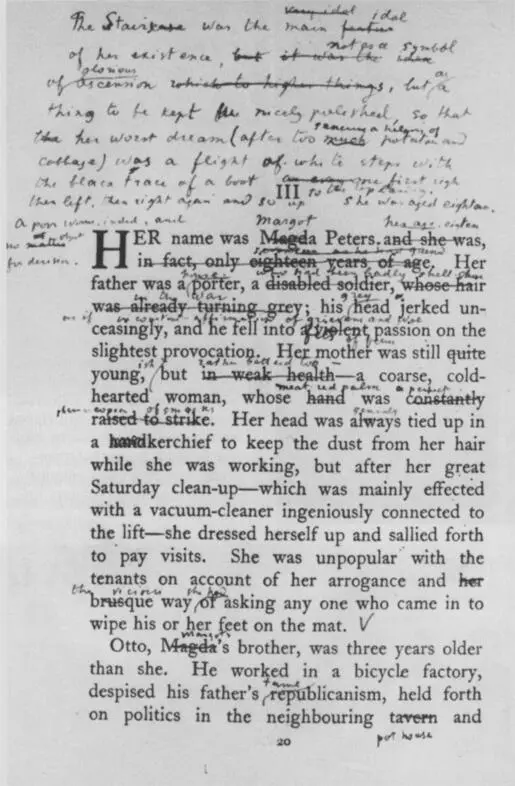 The Staircase was the main feature idol
of her existence, but it was the not as a symbol
of glorious ascension which to higher things, but a
thing to be kept nicely polished, so that
her worst dream (after too much potatoes and
cabbage) was a flight of white steps with
the black trace of a boot first right
then left, then right again and so up
III
to the top landing.
she was aged eighteen.
A poor woman indeed, and
no object
for derision.
Margot
HER name was Magda Peters. and she was,
in fact, only eighteen years of age. Her
father was a porter, a disabled soldier, whose hair
who had been badly shell
in the war
was already turning grey; his head jerked un-
grey
as if in constant affirmation of grievance and woe
ceasingly, and he fell into a violent passion on the
slightest provocation. Her mother was still quite
young, but in weak health—a coarse, cold-
ish
rather battered too
hearted woman, whose hand was constantly
red palm a perfect
raised to strike. Her head was always tied up in
a handkerchief to keep the dust from her hair
while she was working, but after her great
Saturday clean-up—which was mainly effected
with a vacuum-cleaner ingeniously connected to
the lift—she dressed herself up and sallied forth
to pay visits. She was unpopular with the
tenants on account of her arrogance and her
the vicious she had
brusque way of asking any one who came in to
wipe his or her feet on the mat.
Margot's
Otto, Magda's brother, was three years older
than she. He worked in a bicycle factory,
tame
despised his father's republicanism, held forth
on politics in the neighbouring tavern and
20
pot house